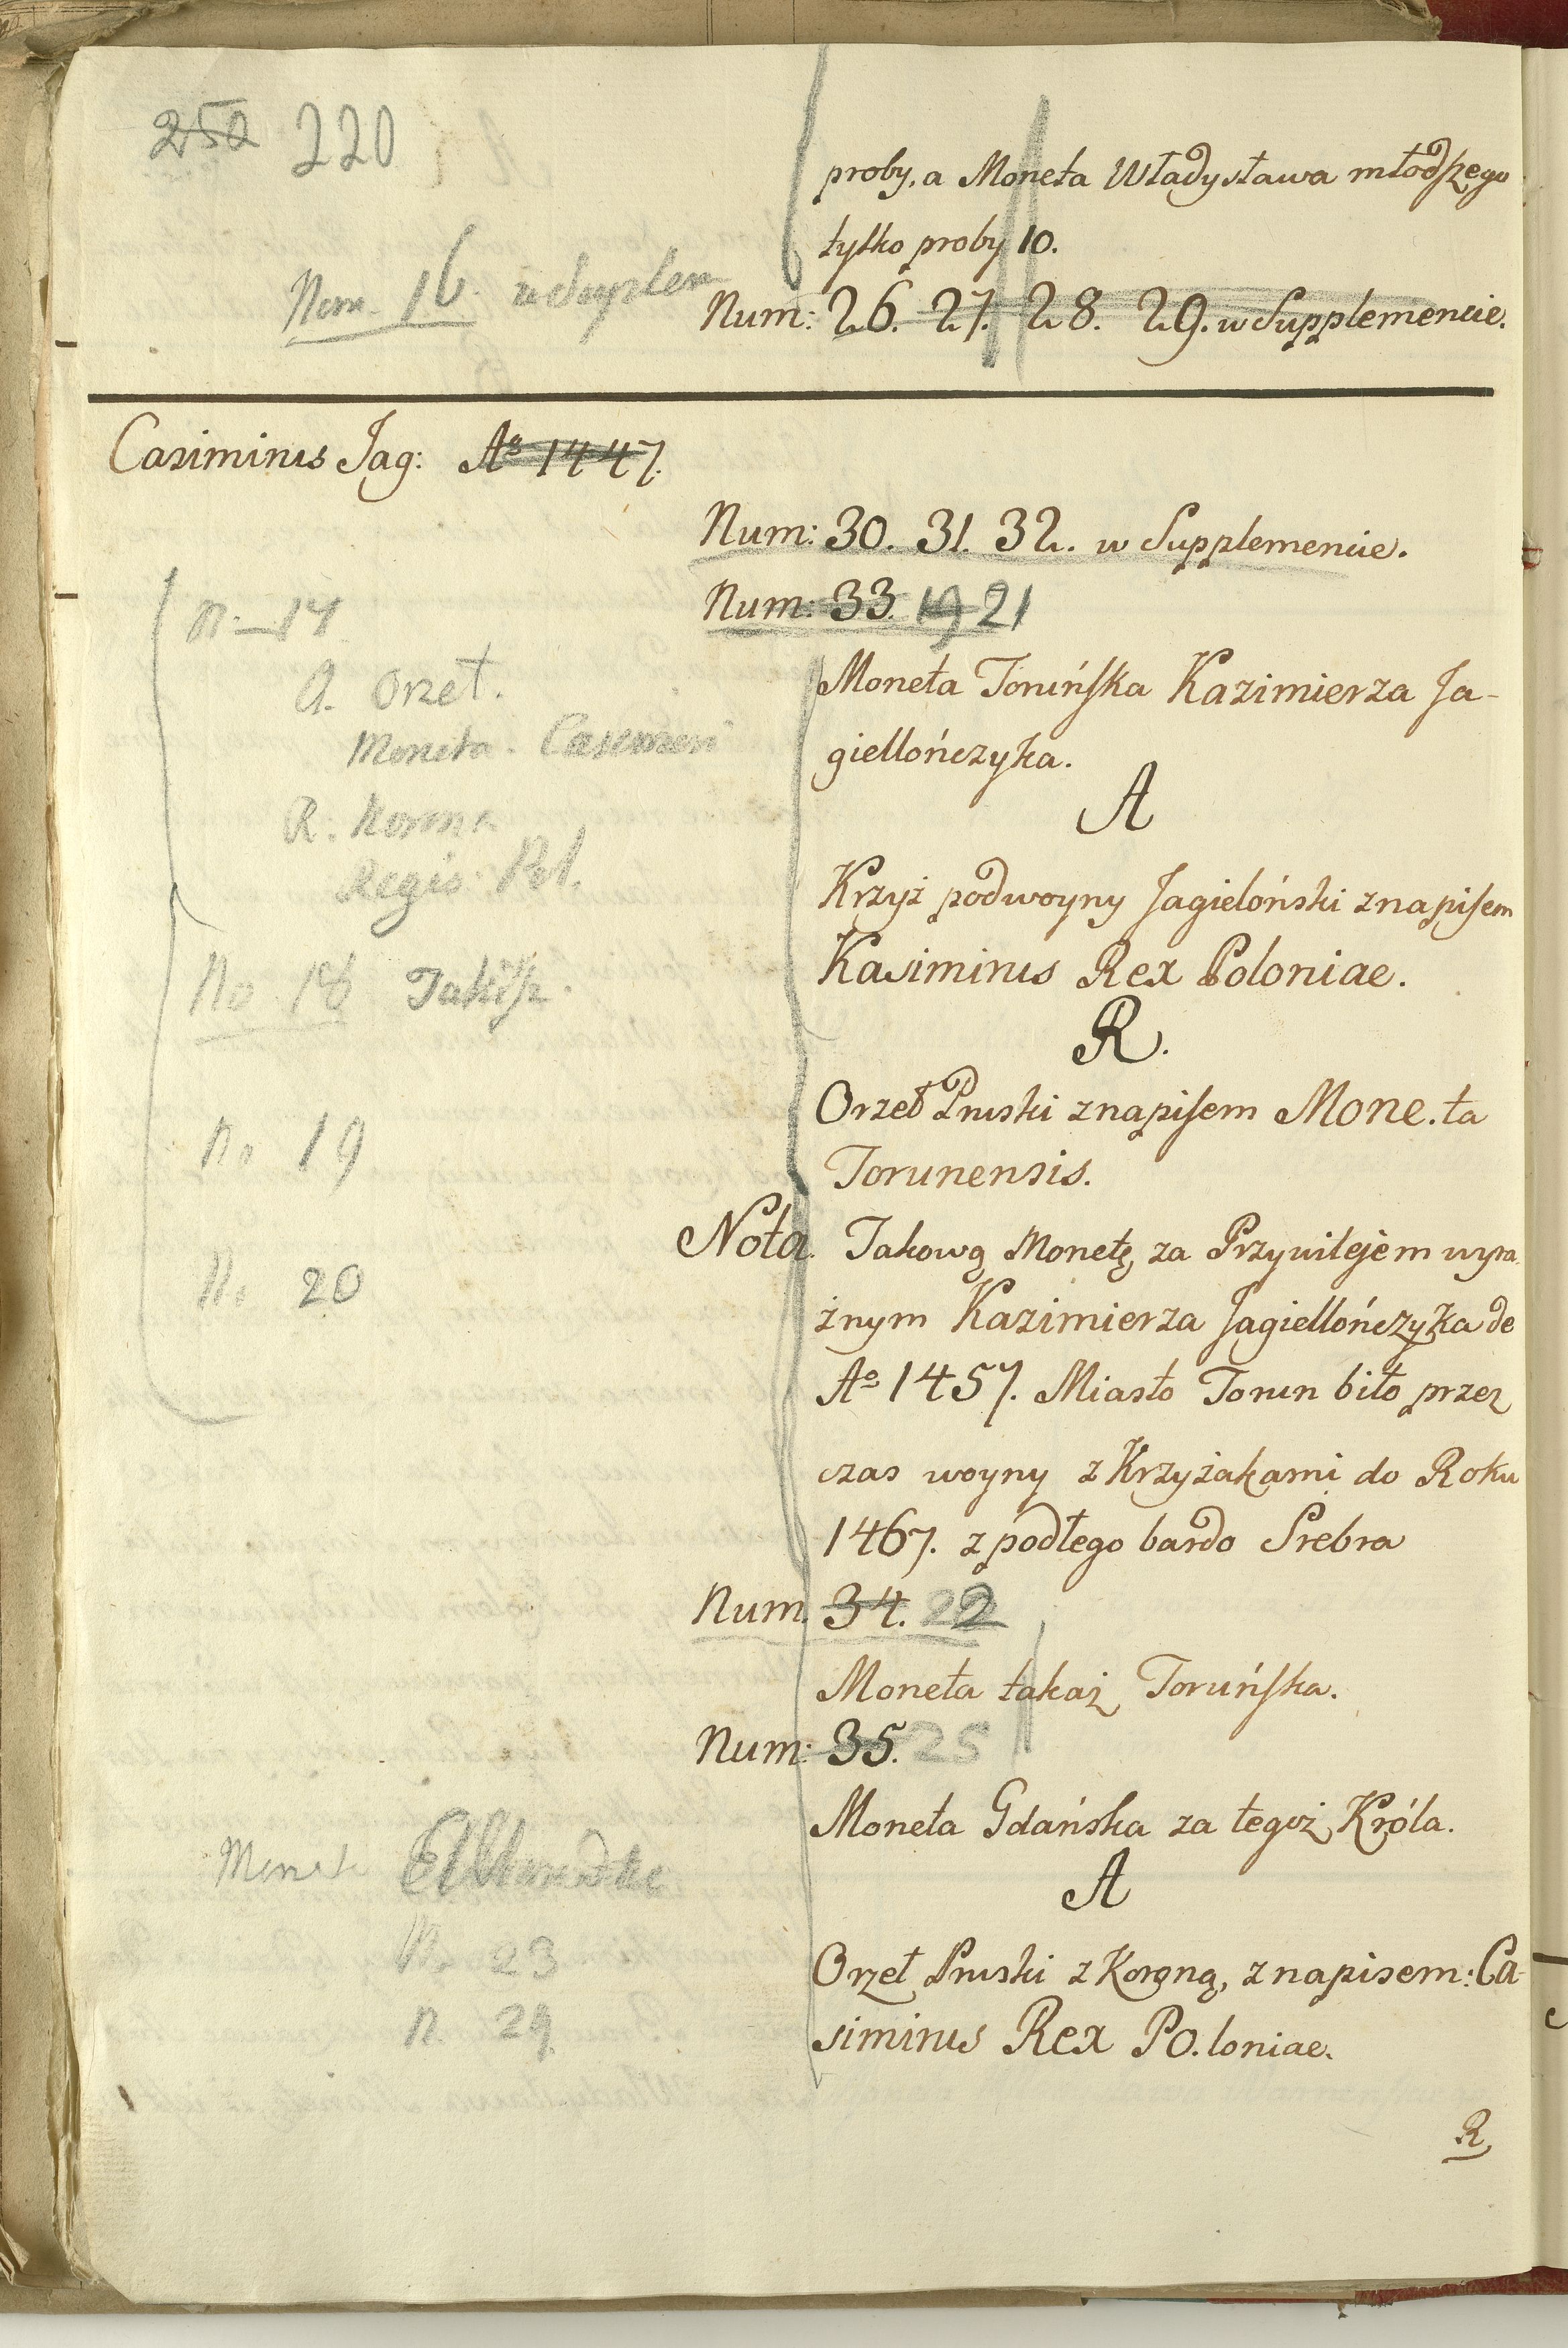 252 220
proby, a Moneta Władysława młodszego
tylko proby 10.
Num. 16. w Suplem
Num: 26. 27. 28. 29. w Supplemencie.
Casimirus Jag: Ao 1447.
Num: 30. 31. 32. w Supplemencie.
Num: 33. 19 21
N. 14
A. Orzeł.
Moneta. Casimiri
R. Korona
Regis Pol.
No 18 Takiż.
No 19
No 20
Moneta Toruńska Kazimierza Ja-
giellończyka.
A
Krzyż podwoyny Jagieloński z napisem
Kasimirus Rex Poloniae.
R.
Orzeł Pruski z napisem Mone.ta
Torunensis.
Nota. Takową Monetę za Przywilejem wyra-
źnym Kazimierza Jagiellończyka de
Ao 1457. Miasto Torun biło przez
czas woyny z Krzyżakami do Roku
1467. z podłego bardo Srebra
Num. 34. 22
Moneta takaż Toruńska.
Num: 35. 25
Moneta Gdańska za tegoż Króla.
A
Monet
No 23
N. 24
Orzeł Pruski z Koroną, z napisem: Ca-
simirus Rex Po.loniae.
R